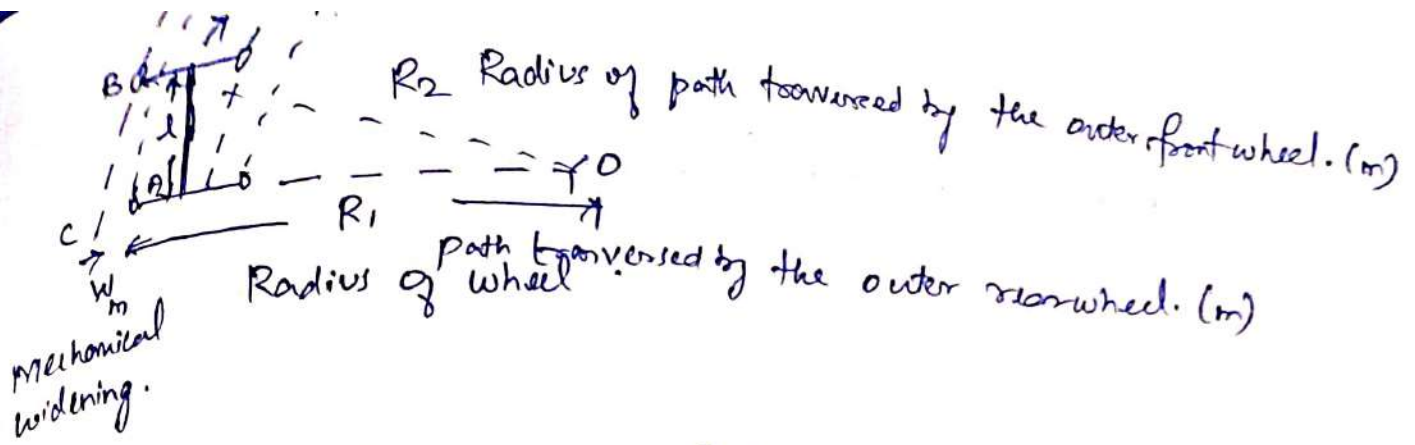 B
R2 Radius of path traversed by the outer front wheel. (m)
l
A
O
C
R1
Wm
Radius of wheel path traversed by the outer rearwheel. (m)
Mechanical
widening.